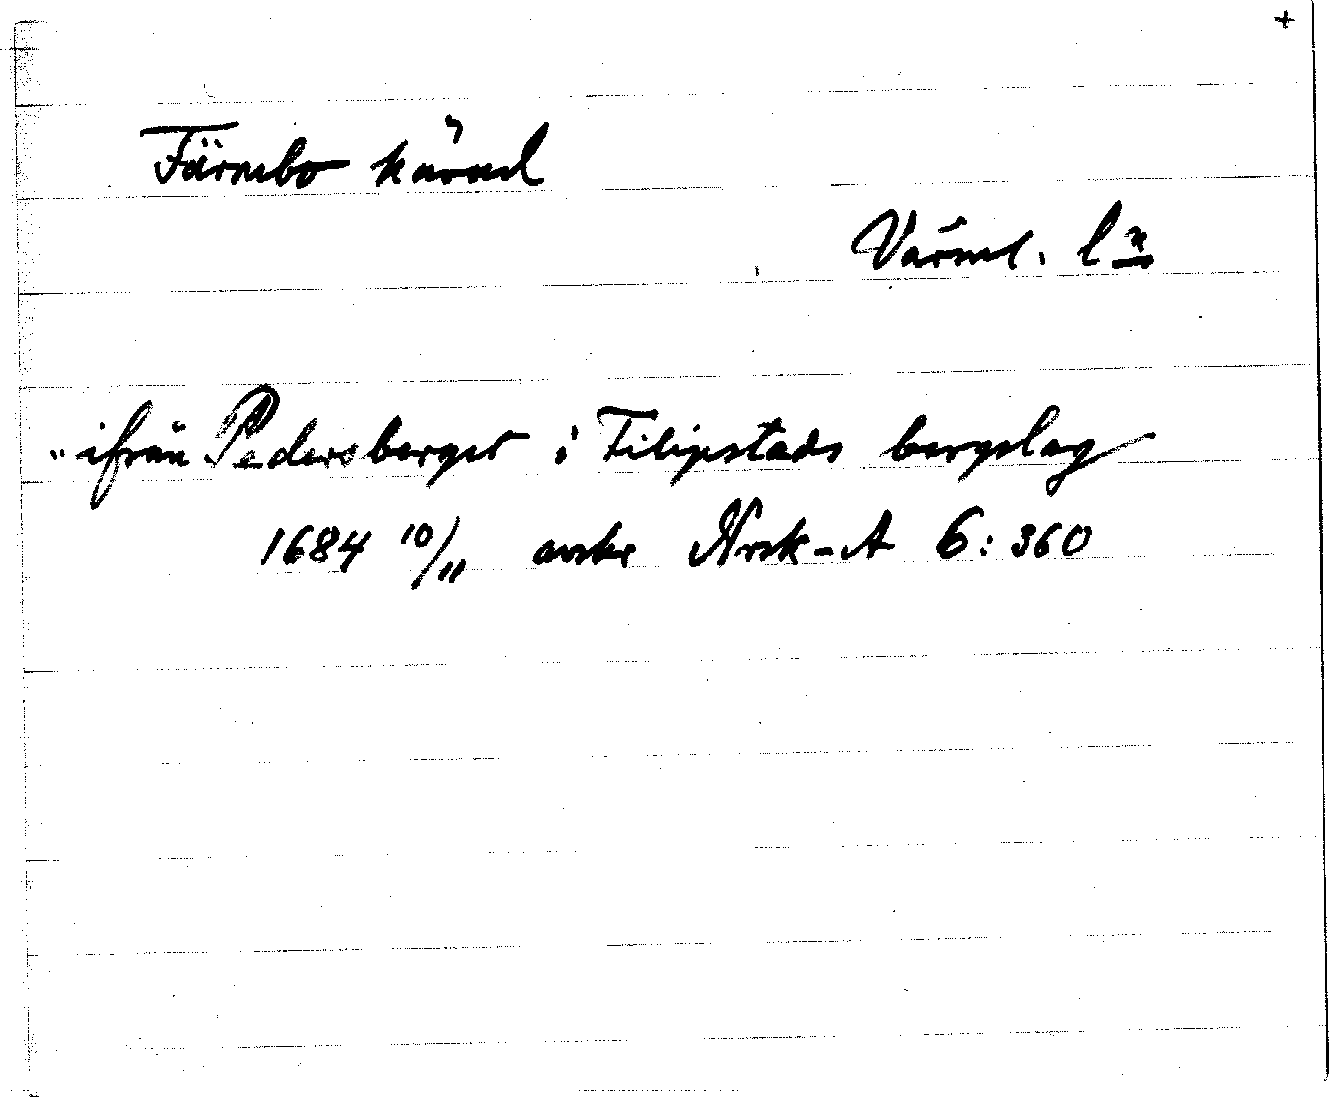 +
Färnebo härad
Värml. län
"ifrån Pedersberget i Filipstads bergslag
1684 10/11 avskr Nrsk-A 6:360